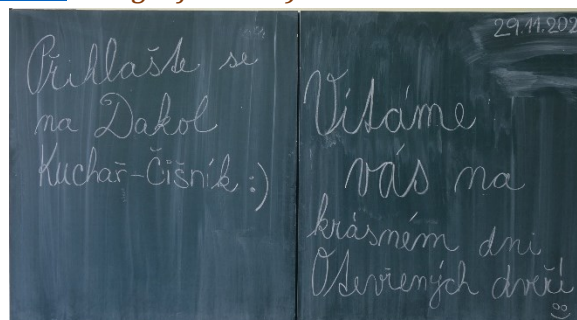 Přihlašte se
na Dakol
Kuchař-Čišník :)
29.11.202
Vítáme
vás na
krásném dni
Otevřených dveří